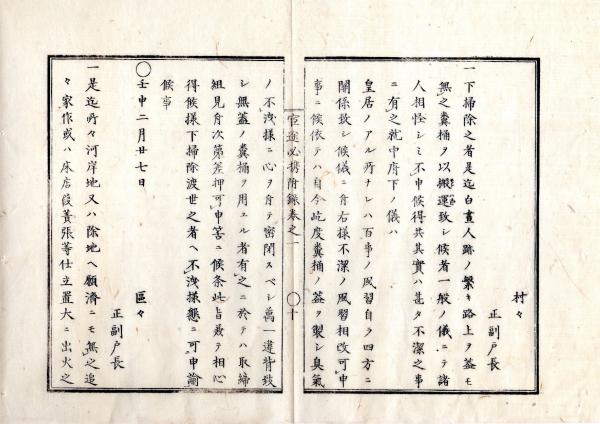 村々
正副戸長
一下掃除之者是迄白晝人跡ノ繋キ路上ヲ蓋モ
無之糞桶ヲ以搬運致シ候者一般ノ儀ニテ諸
人相怪シミ不申候得共其實ハ甚タ不潔之事
ニ有之就中府下ノ儀ハ
皇居ノアル所ナレハ百事ノ風習自ラ四方ニ
關係致シ候儀ニ付右様不潔ノ風習相改可申
事ニ候依テハ自今屹度糞桶ノ蓋ヲ製シ臭氣
官途必携附録巻之一
〇十
ノ不洩様ニ心ヲ付テ密閉スヘシ萬一違背致
シ無蓋ノ糞桶ヲ用ユル者有之ニ於テハ取締
組見付次第差押可申筈ニ候条此旨兼テ相心
得候様下掃除渡世之者ヘ不洩様懇ニ可申諭
候事
〇壬申二月廿七日
區々
正副戸長
一是迄所々河岸地又ハ除地ヘ願濟ニモ無之追
々家作或ハ床店葭簀張等仕立置大ニ出火之